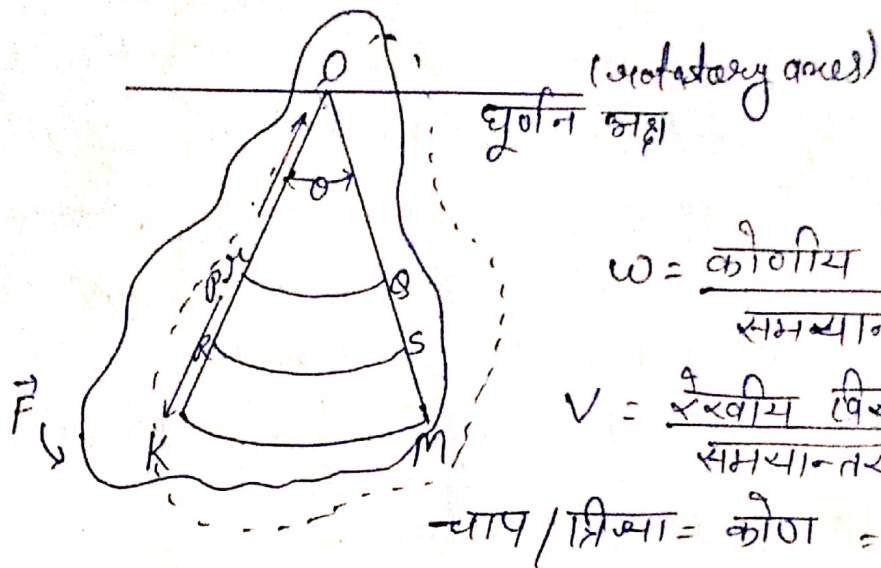 O
(rotatory axes)
घूर्णन अक्ष
θ
r
P Q
R S
K M
F⃗
ω = कोणीय
समयान
V = रेखीय विस्
समयान्तर
चाप / त्रिज्या = कोण =